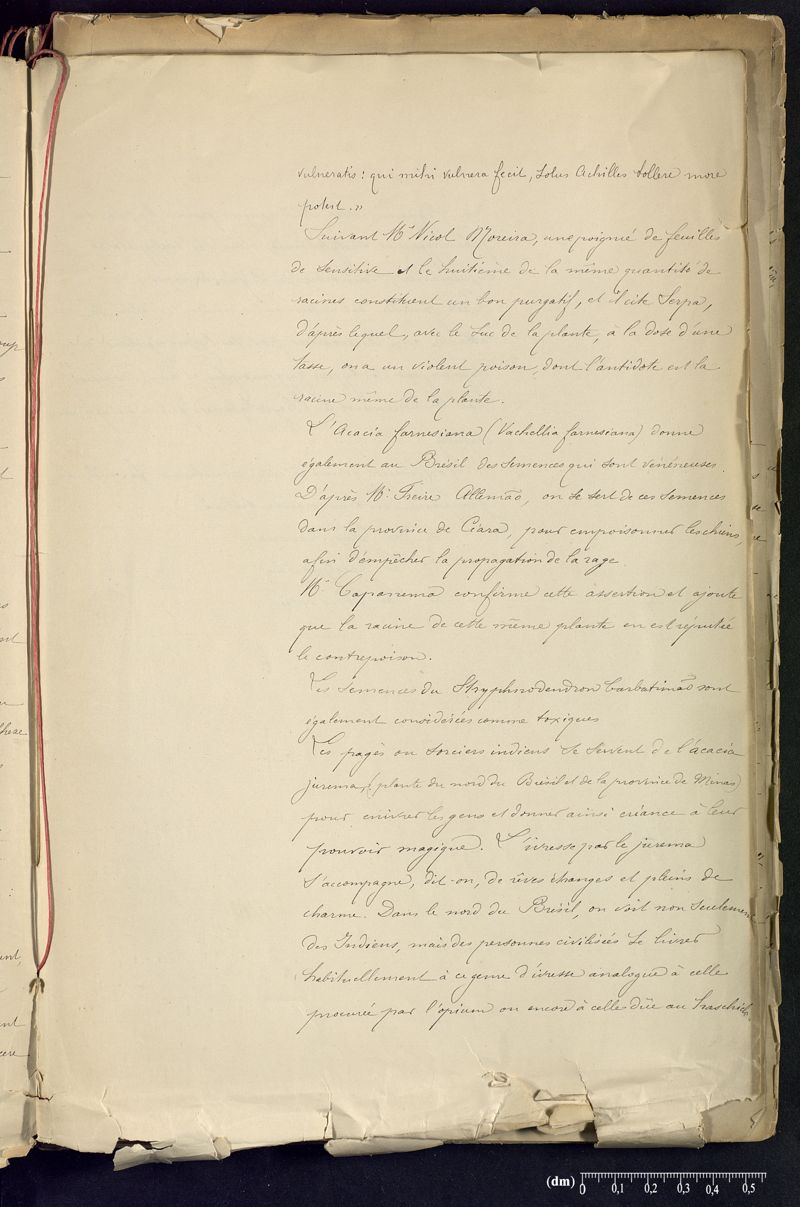 vulneratis : qui mihi vulnera fecit, solus Achilles tollere more
potest. »
Suivant Mr Nicol Moreira, une poigniè de feuilles
de sensitive et le huitième de la même quantité de
racines constituent un bon purgatif, et il cite Serpa,
d'après lequel, avec le suc de la plante, à la dose d'une
tasse, on a un violent poison, dont l'antidote est la
racine même de la plante.
L'Acacia farnesiana (Vachellia farnesiana) donne
également au Brésil des semences qui sont vénéneuses.
D'après Mr Freire Allemão, on se sert de ces semences
dans la province de Céara, pour empoisonner les chiens,
afin d'empêcher la propagation de la rage.
Mr Capanema confirme cette assertion et ajoute
que la racine de cette même plante en est réputée
le contrepoison.
Les semences du Stryphnodendron barbatimão sont
également considérées comme toxiques
Les pagès ou sorciers indiens se servent de l'acacia
jurema, (plante du nord du Brésil et de la province de Minas)
pour enivrer les gens et donner ainsi créance à leur
pouvoir magique. L'ivresse par le jurema
s'accompagne, dit-on, de rêves étranges et pleins de
charme. Dans le nord du Brésil, on voit non seulement
des Indiens, mais des personnes civilisées se livrer
habituellement à ce genre d'ivresse analogue à celle
procurée par l'opium ou encore à celle dûe au haschich
(dm) 0 0,1 0,2 0,3 0,4 0,5